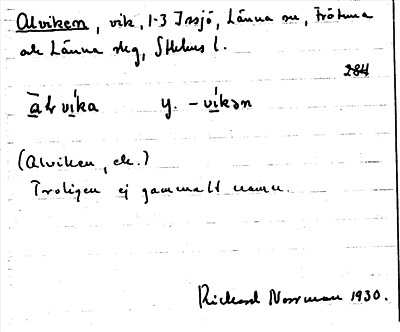 Alviken, vik, 1-3 Issjö, Länna sn, Frötuna
och Länna skg, Sthlms l.
284
alvika y. -vikən
(Alviken, ek.)
Troligen ej gammalt namn.
Rickard Norrman 1930.